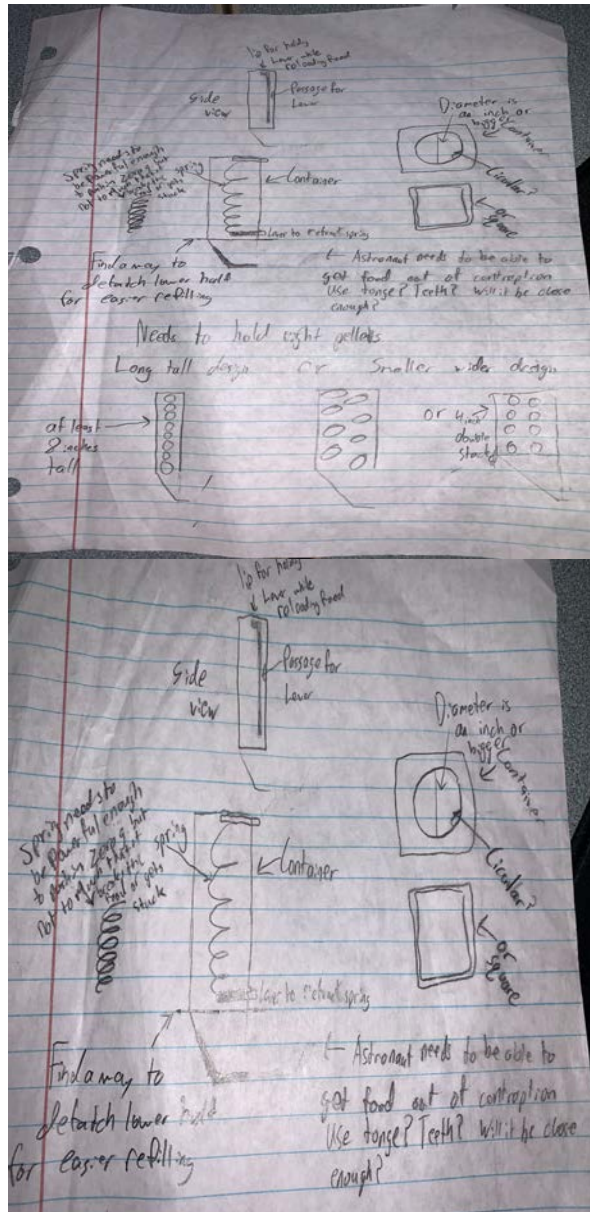 lip for holding
lever while
reloading food
Side
view
Passage for
Lever
Diameter is
an inch or
bigger
Container
Circular?
or
square
Spring needs to
be powerful enough
to push in zero g but
not to much that it
breaks the
food or gets
stuck
spring
Container
Lever to retract spring
Find a way to
detatch lower hold
for easier refilling
Astronaut needs to be able to
get food out of contraption
Use tonge? Teeth? Will it be close
enough?
Needs to hold eight pellets
Long tall design or Smaller wider design
at least
8 inches
tall
or 4 inch
double
stack
lip for holding
lever while
reloading food
Side
view
Passage for
Lever
Diameter is
an inch or
bigger
Container
Circular?
or
square
Spring needs to
be powerful enough
to push in zero g but
not to much that it
breaks the
food or gets
stuck
spring
Container
Lever to retract spring
Find a way to
detatch lower hold
for easier refilling
Astronaut needs to be able to
get food out of contraption
Use tonge? Teeth? Will it be close
enough?